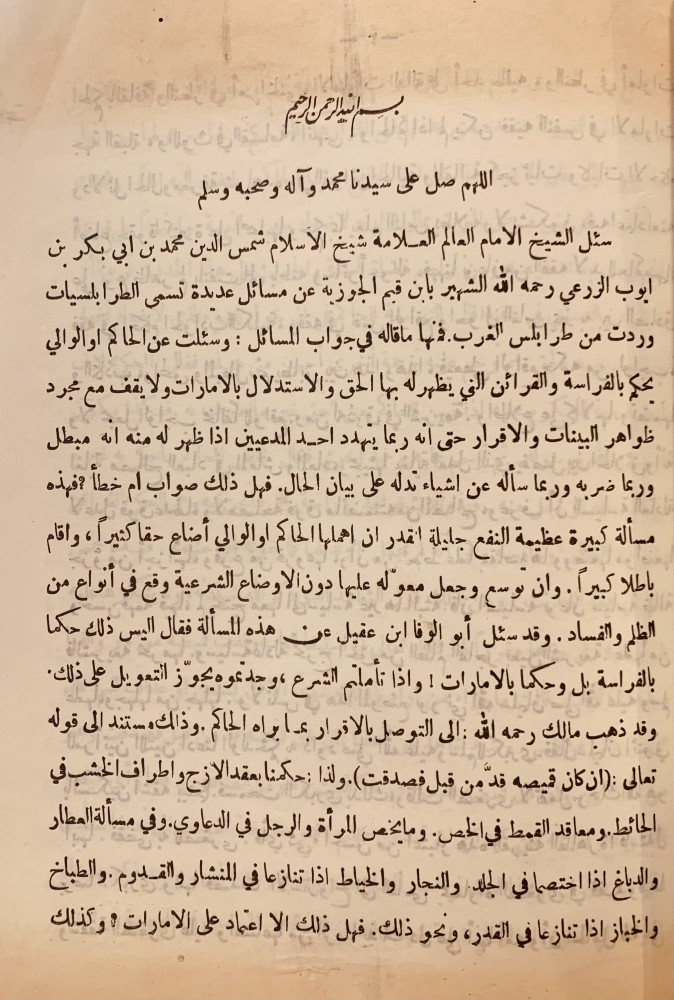 بسم الله الرحمن الرحيم
اللهم صل على سيدنا محمد وآله وصحبه وسلم
سئل الشيخ الامام العالم العـلامة شيخ الاسلام شمس الدين محمد بن ابي بكر بن
ايوب الزرعي رحمه الله الشهير بابن قيم الجوزية عن مسائل عديدة تسمى الطرابلسيات
وردت من طرابلس الغرب. فمنها ماقاله في جواب المسائل : وسئلت عن الحاكم او الوالي
يحكم بالفراسة والقرائن التي يظهر له بها الحق والاستدلال بالامارات ولا يقف مع مجرد
ظواهر البينات والاقرار حتى انه ربما يتهدد احـد المدعيين اذا ظهر له منه انه مبطل
وربما ضربه وربما سأله عن اشياء تدله على بيان الحال. فهل ذلك صواب ام خطأ ؟ فهذه
مسألة كبيرة عظيمة النفع جليلة القدر ان اهملها الحاكم او الوالي أضاع حقا كثيراً ، واقام
باطلا كبيراً . وان توسع وجعل معوّله عليها دون الاوضاع الشرعية وقع في أنواع من
الظلم والفساد . وقد سئل أبو الوفا ابن عقيل عن هذه المسألة فقال اليس ذلك حكما
بالفراسة بل وحكما بالامارات ! واذا تأملتم الشرع ، وجدتموه يجوّز التعويل على ذلك.
وقد ذهب مالك رحمه الله : الى التوصل بالاقرار بمـا يراه الحاكم . وذالك مستند الى قوله
تعالى : (ان كان قميصه قدّ من قبل فصدقت). ولذا : حكمنا بعقد الازج واطراف الخشب في
الحائط. ومعاقد القمط في الخص. ومايخص المرأة والرجل في الدعاوي. وفي مسألة العطار
والدباغ اذا اختصما في الجلد والنجار والخياط اذا تنازعا في المنشار والقـدوم . والطباخ
والخباز اذا تنازعا في القدر، ونحو ذلك. فهل ذلك الا اعتماد على الامارات ؟ وكذلك